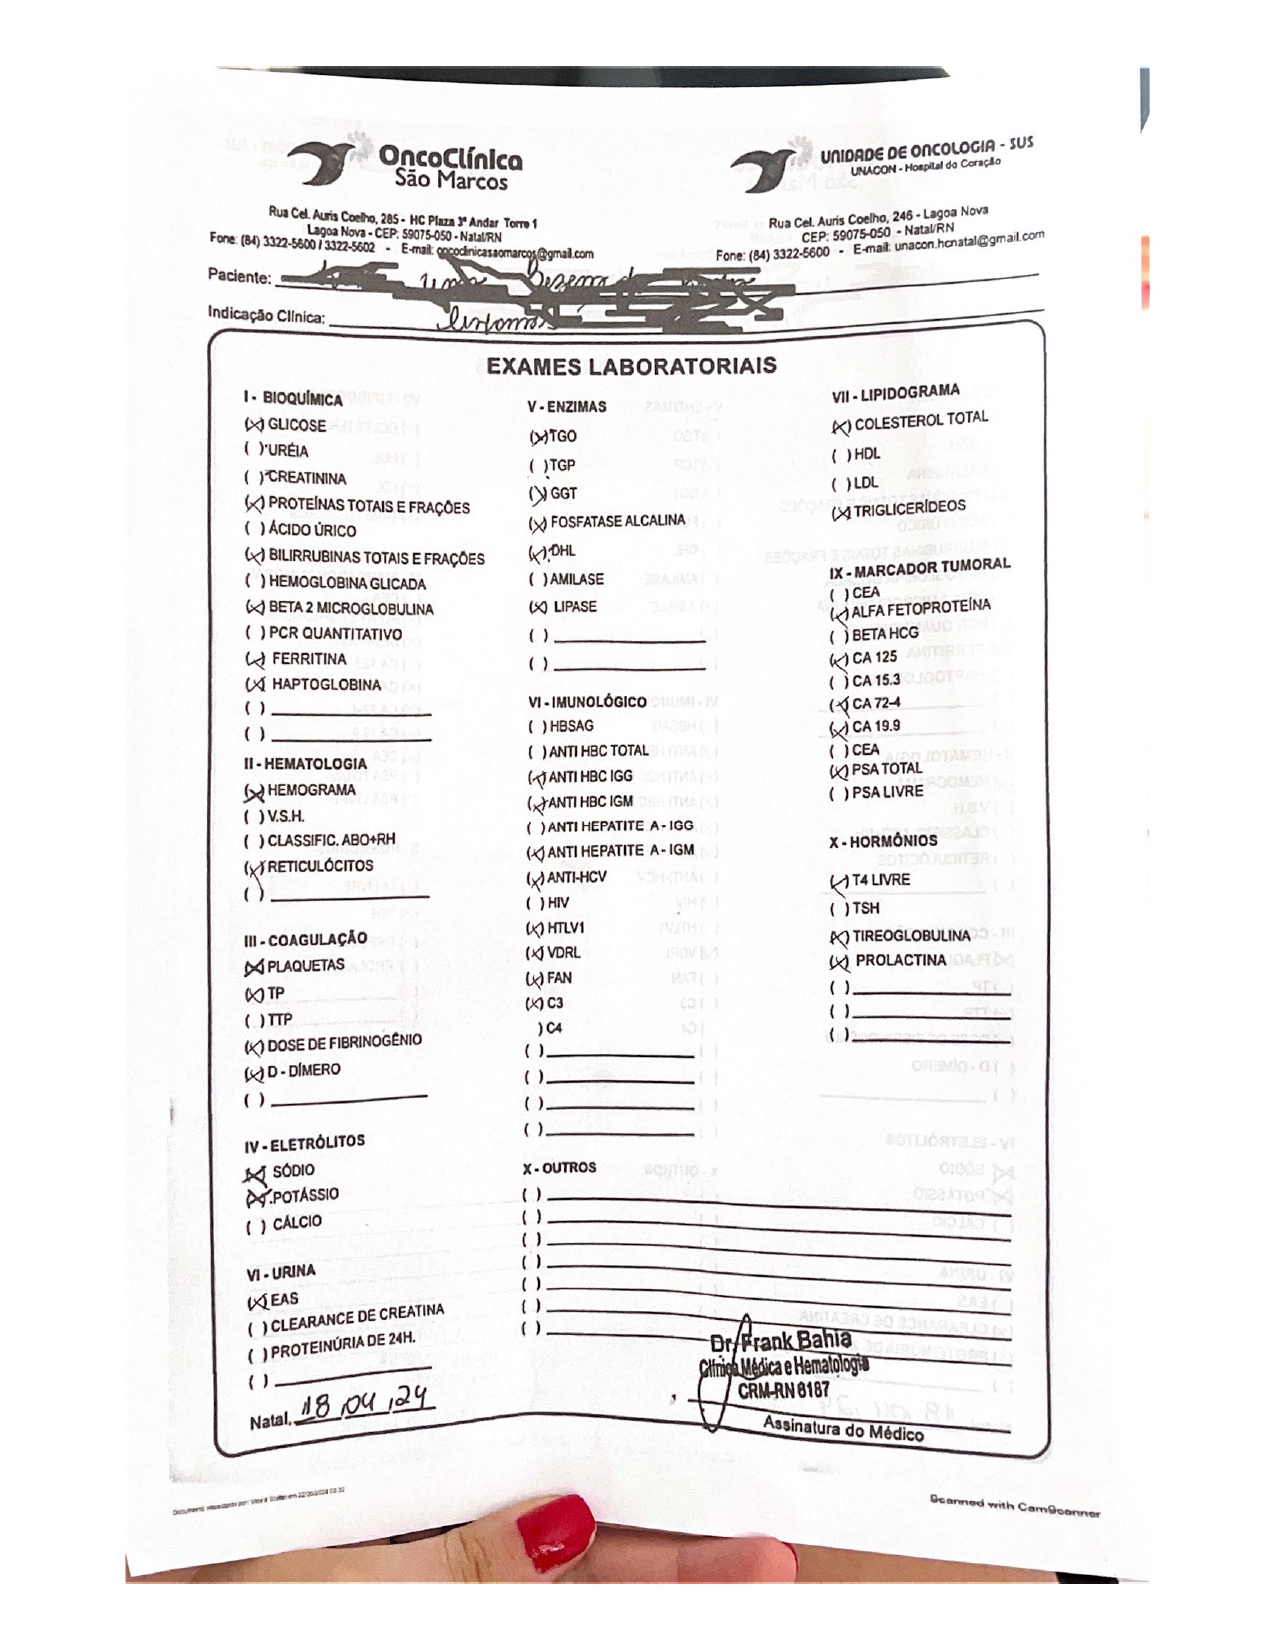 OncoClínica
São Marcos
Rua Cel. Auris Coelho, 285 - HC Plaza 3º Andar Torre 1
Lagoa Nova - CEP: 59075-050 - Natal/RN
Fone: (84) 3322-5600 / 3322-5602 - E-mail: oncoclinicasaomarcos@gmail.com
UNIDADE DE ONCOLOGIA - SUS
UNACON - Hospital do Coração
Rua Cel. Auris Coelho, 246 - Lagoa Nova
CEP: 59075-050 - Natal/RN
Fone: (84) 3322-5600 - E-mail: unacon.hcnatal@gmail.com
Paciente:
Indicação Clínica:
EXAMES LABORATORIAIS
I - BIOQUÍMICA
(X) GLICOSE
( ) URÉIA
( ) CREATININA
(X) PROTEÍNAS TOTAIS E FRAÇÕES
( ) ÁCIDO ÚRICO
(X) BILIRRUBINAS TOTAIS E FRAÇÕES
( ) HEMOGLOBINA GLICADA
(X) BETA 2 MICROGLOBULINA
( ) PCR QUANTITATIVO
(X) FERRITINA
(X) HAPTOGLOBINA
( )
( )
II - HEMATOLOGIA
(X) HEMOGRAMA
( ) V.S.H.
( ) CLASSIFIC. ABO+RH
(X) RETICULÓCITOS
( )
III - COAGULAÇÃO
(X) PLAQUETAS
(X) TP
( ) TTP
(X) DOSE DE FIBRINOGÊNIO
(X) D - DÍMERO
( )
IV - ELETRÓLITOS
(X) SÓDIO
(X) POTÁSSIO
( ) CÁLCIO
VI - URINA
(X) EAS
( ) CLEARANCE DE CREATINA
( ) PROTEINÚRIA DE 24H.
( )
Natal, 18,04,24
V - ENZIMAS
(X) TGO
( ) TGP
(X) GGT
(X) FOSFATASE ALCALINA
(X) DHL
( ) AMILASE
(X) LIPASE
( )
( )
VI - IMUNOLÓGICO
( ) HBSAG
( ) ANTI HBC TOTAL
(X) ANTI HBC IGG
(X) ANTI HBC IGM
( ) ANTI HEPATITE A - IGG
(X) ANTI HEPATITE A - IGM
(X) ANTI-HCV
( ) HIV
(X) HTLV1
(X) VDRL
(X) FAN
(X) C3
) C4
( )
( )
( )
( )
X - OUTROS
( )
( )
( )
( )
( )
( )
( )
VII - LIPIDOGRAMA
(X) COLESTEROL TOTAL
( ) HDL
( ) LDL
(X) TRIGLICERÍDEOS
IX - MARCADOR TUMORAL
( ) CEA
(X) ALFA FETOPROTEÍNA
( ) BETA HCG
(X) CA 125
( ) CA 15.3
(X) CA 72-4
(X) CA 19.9
( ) CEA
(X) PSA TOTAL
( ) PSA LIVRE
X - HORMÔNIOS
(X) T4 LIVRE
( ) TSH
(X) TIREOGLOBULINA
(X) PROLACTINA
( )
( )
( )
Dr. Frank Bahia
Clínica Médica e Hematologia
CRM-RN 8187
Assinatura do Médico
Scanned with CamScanner